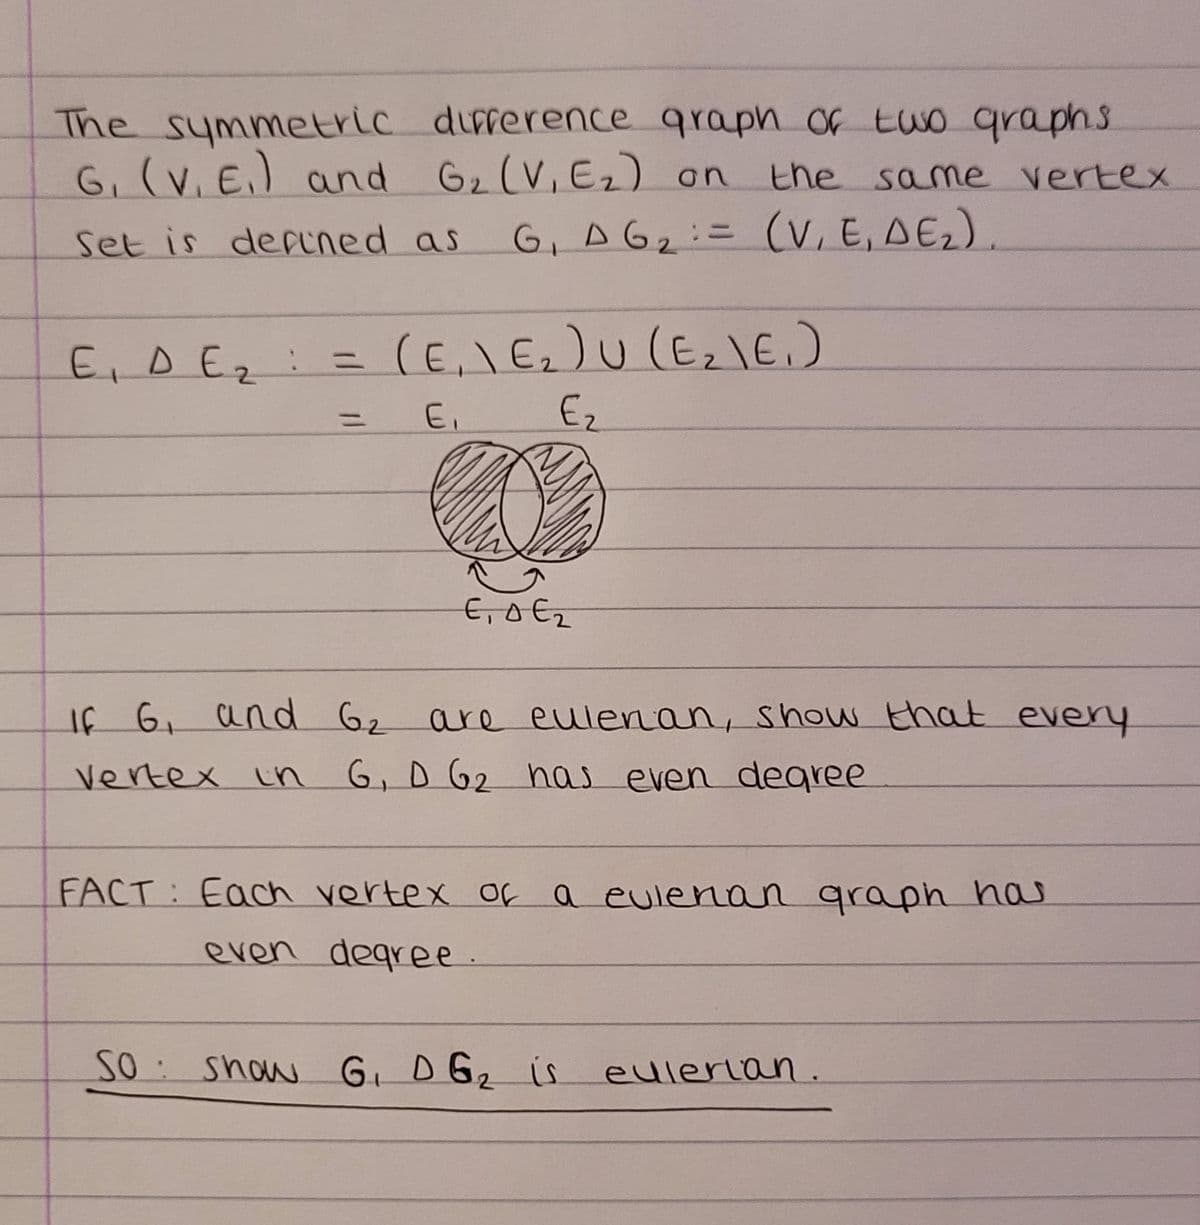 The symmetric difference graph of two graphs
G₁ (V, E₁) and G₂ (V, E₂) on the same vertex
set is defined as G₁ Δ G₂ := (V, E₁ Δ E₂).
E₁ Δ E₂ := (E₁ \ E₂) ∪ (E₂ \ E₁)
= E₁ E₂
E₁ Δ E₂
If G₁ and G₂ are eulerian, show that every
vertex in G₁ Δ G₂ has even degree
FACT: Each vertex of a eulerian graph has
even degree.
SO: show G₁ Δ G₂ is eulerian.